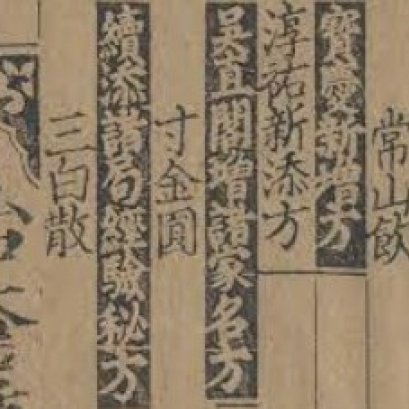 常山飲
寶慶新增方
淳祐新添方
吳直閣增諸家名方
寸金圓
續添諸局經驗秘方
三白散